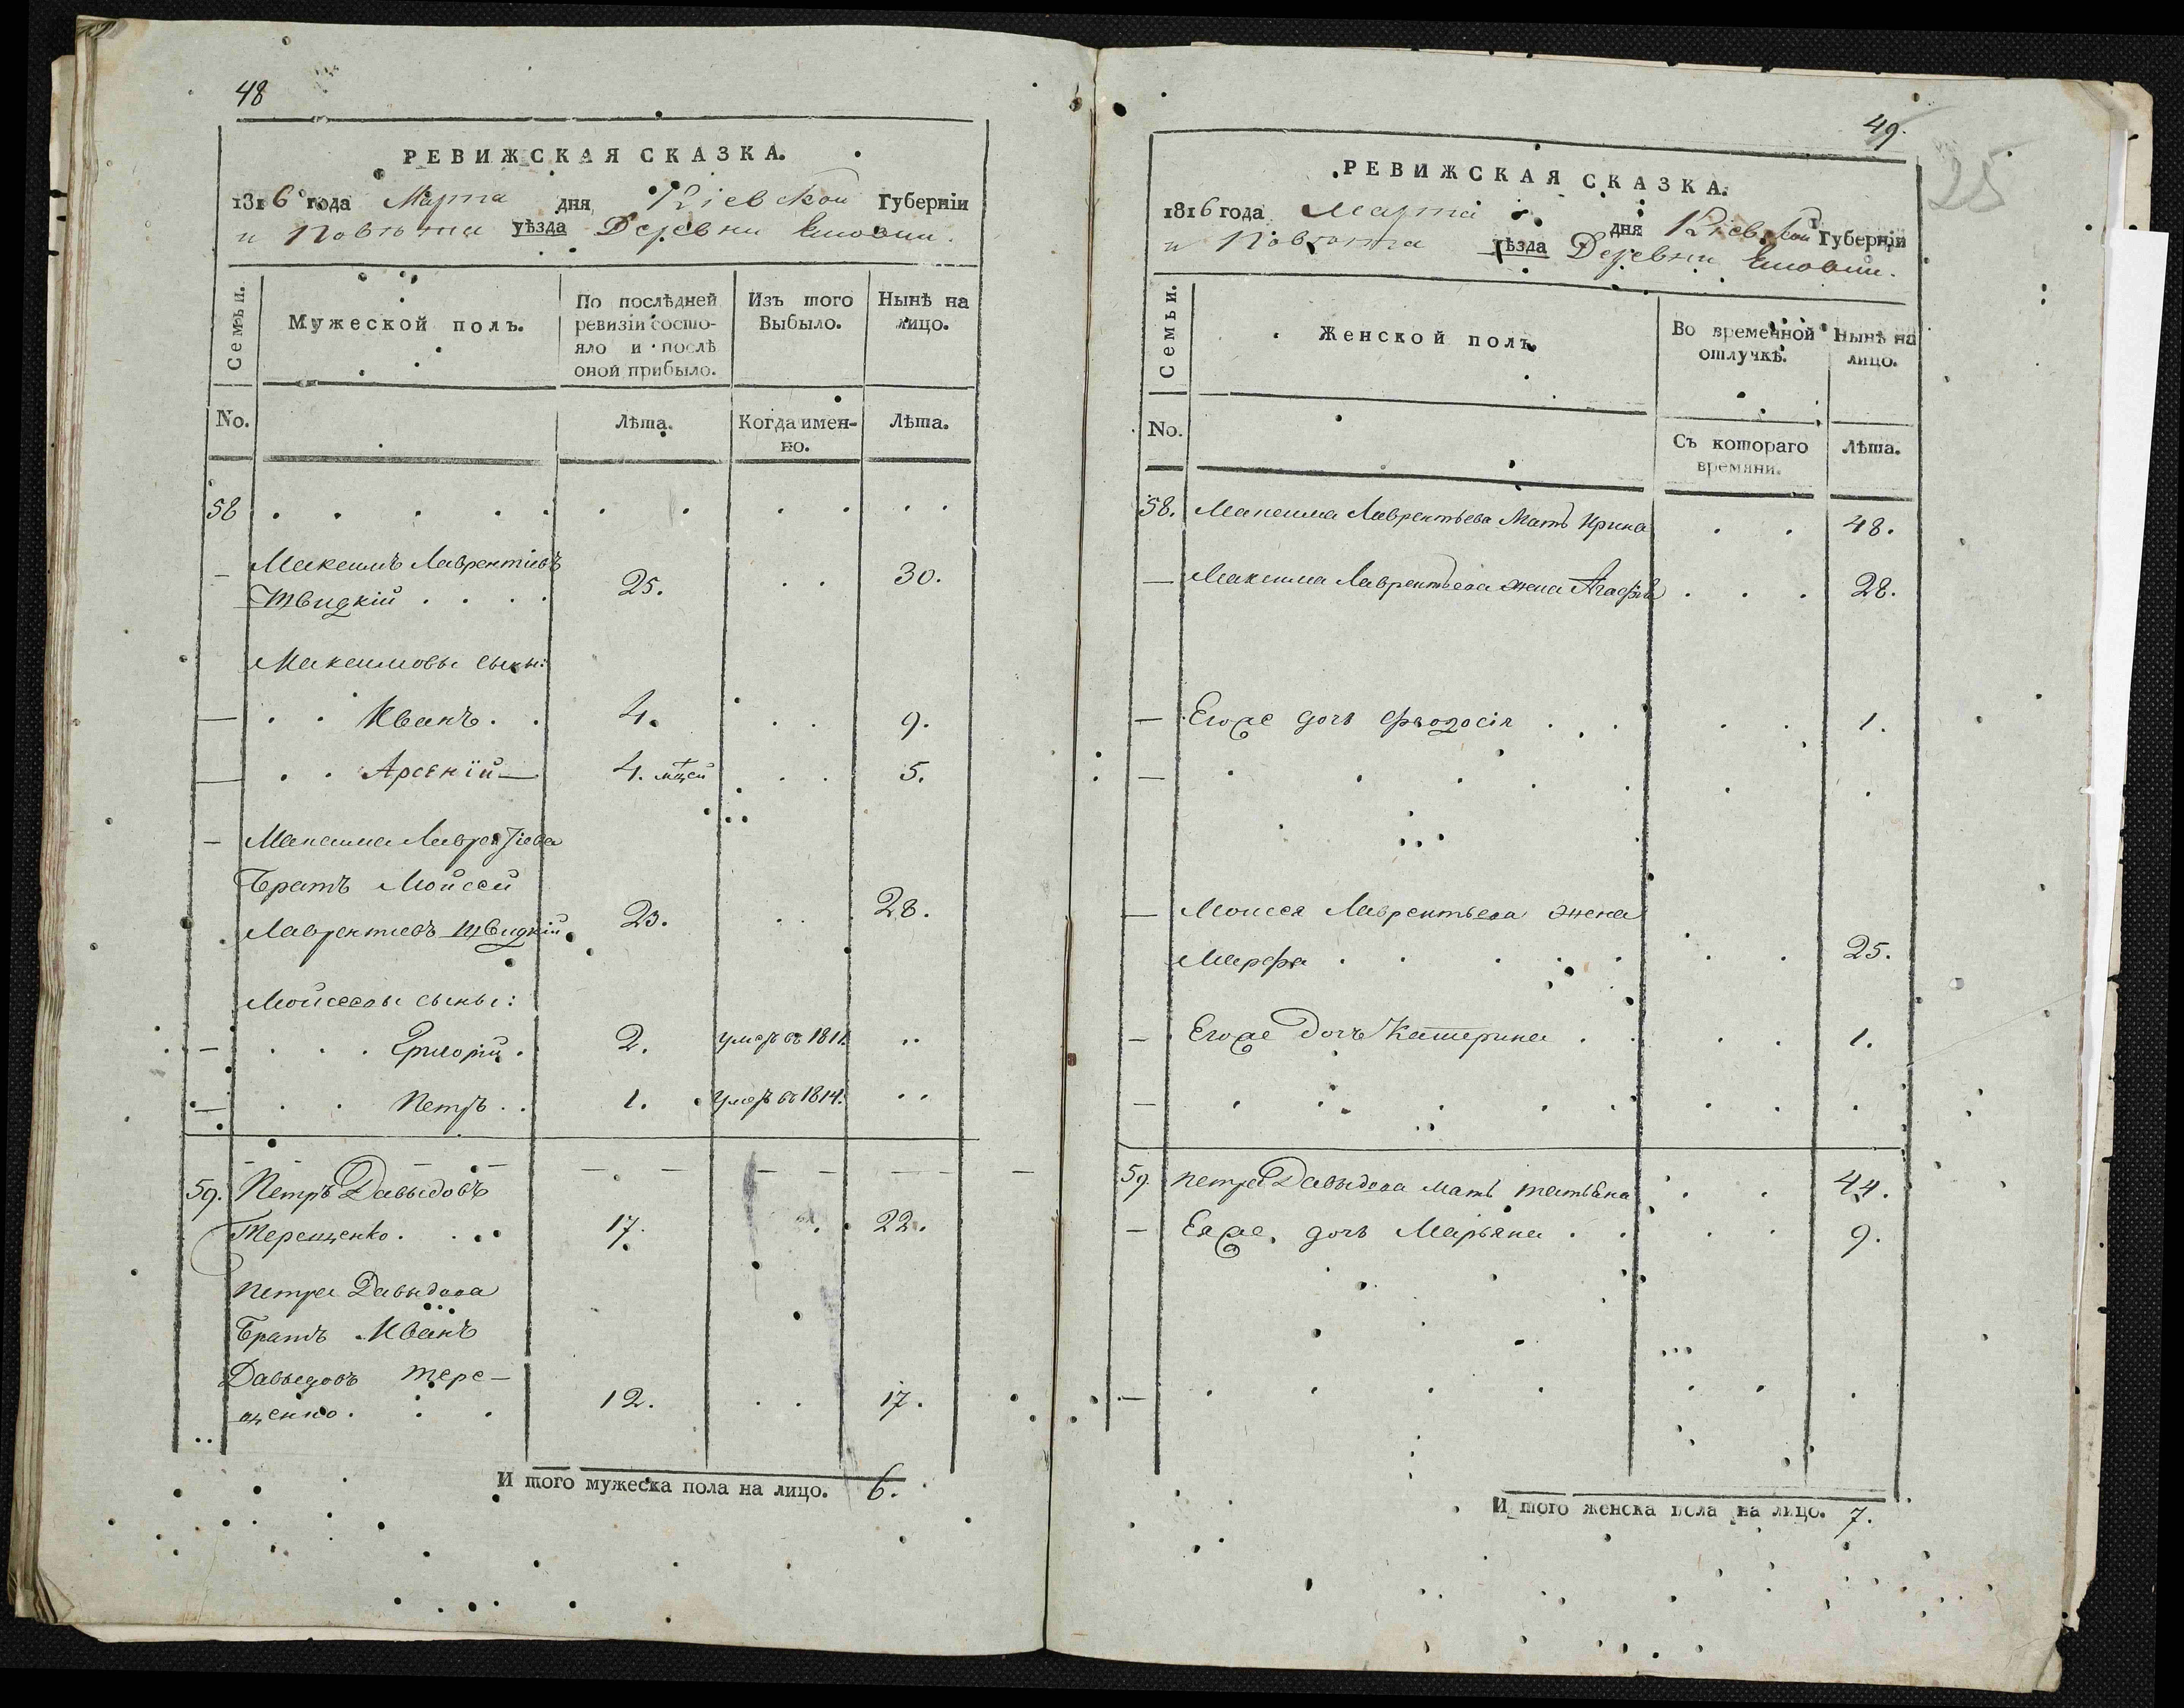 48
РЕВИЖСКАЯ СКАЗКА.
1816 года Марта дня Кіевской Губерніи
и Повѣта уѣзда Деревни
Семьи. Мужеской полъ. По послѣдней ревизіи состо- Изъ того Выбыло. Нынѣ на лицо.
яло и послѣ
оной прибыло.
No. Лѣта. Когда имен- Лѣта.
но.
58
— Максимъ Лаврентіевъ
Швидкій . . . . 25. . . 30.
Максимовы сыны:
— . . Иванъ . . 4. . . 9.
— . . Арсеній — 4. мцей . . 5.
— Максима Лаврентіева
Братъ Мойсей
Лаврентіевъ Швидкій 23. . . 28.
Мойсеевы сыны:
— . . . Григорій . 2. умеръ въ 1811. . .
— . . Петръ . . 1. умеръ въ 1814. . .
59. Петръ Давыдовъ
Терещенко . . . 17. . 22.
Петра Давыдова
Братъ Иванъ
Давыдовъ Тере-
щенко . . . 12. . . 17.
И того мужеска пола на лицо. 6.
49.
25
РЕВИЖСКАЯ СКАЗКА.
1816 года Марта дня Кіевской Губерніи
и Повѣта уѣзда Деревни
Семьи. Женской полъ. Во временной отлучкѣ. Нынѣ на лицо.
No. Съ котораго времяни. Лѣта.
58. Максима Лаврентьева Мать Ирина . . 48.
— Максима Лаврентьева жена Агафія . . . 28.
— Егоже дочь Феодосія . . . . . 1.
— Моисея Лаврентьева жена
Марфа . . . . . . . 25.
— Егоже дочь Катерина . . . . 1.
59. Петра Давыдова мать Татьяна . . 44.
— Еяже дочь Марьяна . . . . 9.
И того женска пола на лицо. 7.